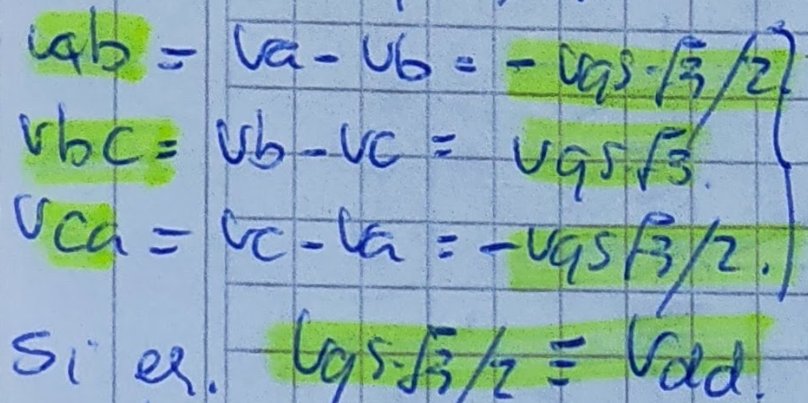 Vab = Va - Vb = - Vqs·√3/2
Vbc = Vb - Vc = Vqs√3.
Vca = Vc - Va = - Vqs√3/2.
Si es. Vqs·√3/2 = Vdd.